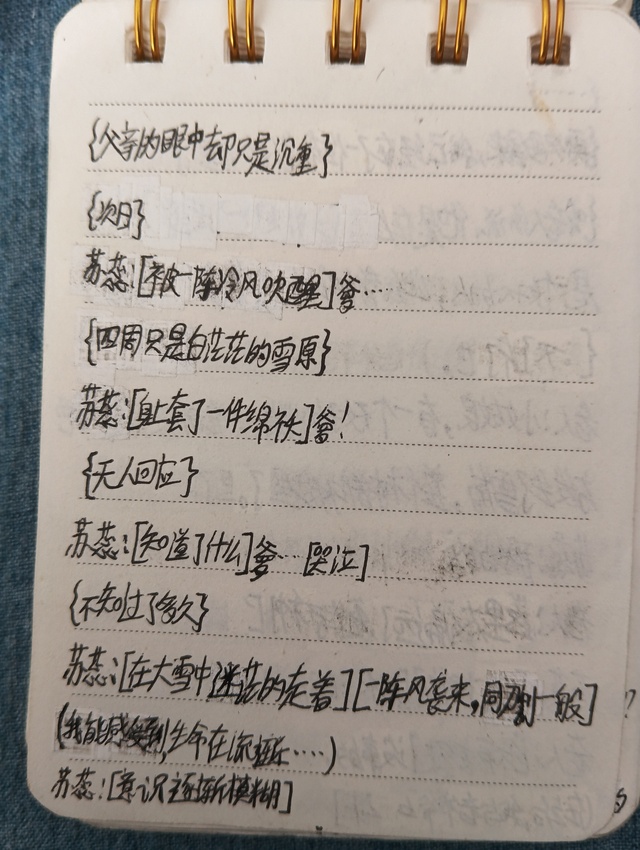 {父亲的眼中却只是沉重}
{次日}
苏蕊:[被一阵冷风吹醒]爹…
{四周只是白茫茫的雪原}
苏蕊:[身上套了一件绵袄]爹!
{无人回应}
苏蕊:[知道了什么]爹… [哭泣]
{不知过了多久}
苏蕊:[在大雪中迷茫的走着][一阵风袭来,同刀割一般]
(我能感受到,生命在流逝……)
苏蕊:[意识逐渐模糊]